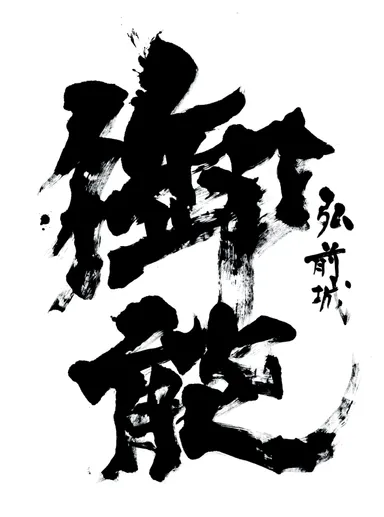 弘前城
御能